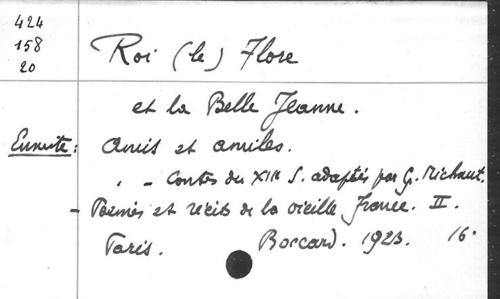 424
158
20
Roi (le) Flore
et la Belle Jeanne.
Ensuite: Amis et amiles.
, - Contes du XIIIe S. adaptés par G. Michaut.
- Poèmes et récits de la vieille France. II.
Paris. Boccard. 1923. 16°